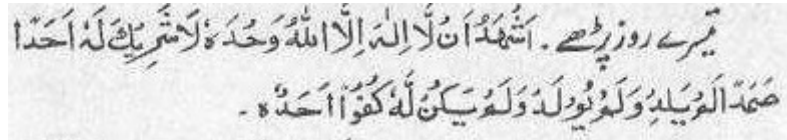 تیسرے روز پڑھے ۔ اَشْهَدُ اَنْ لَّا اِلٰهَ اِلَّا اللّٰهُ وَحْدَهٗ لَاشَرِيْكَ لَهٗ اَحَدًا
صَمَدًا لَمْ يَلِدْ وَلَمْ يُوْلَدْ وَلَمْ يَكُنْ لَّهٗ كُفُوًا اَحَدٌ ہ ۔